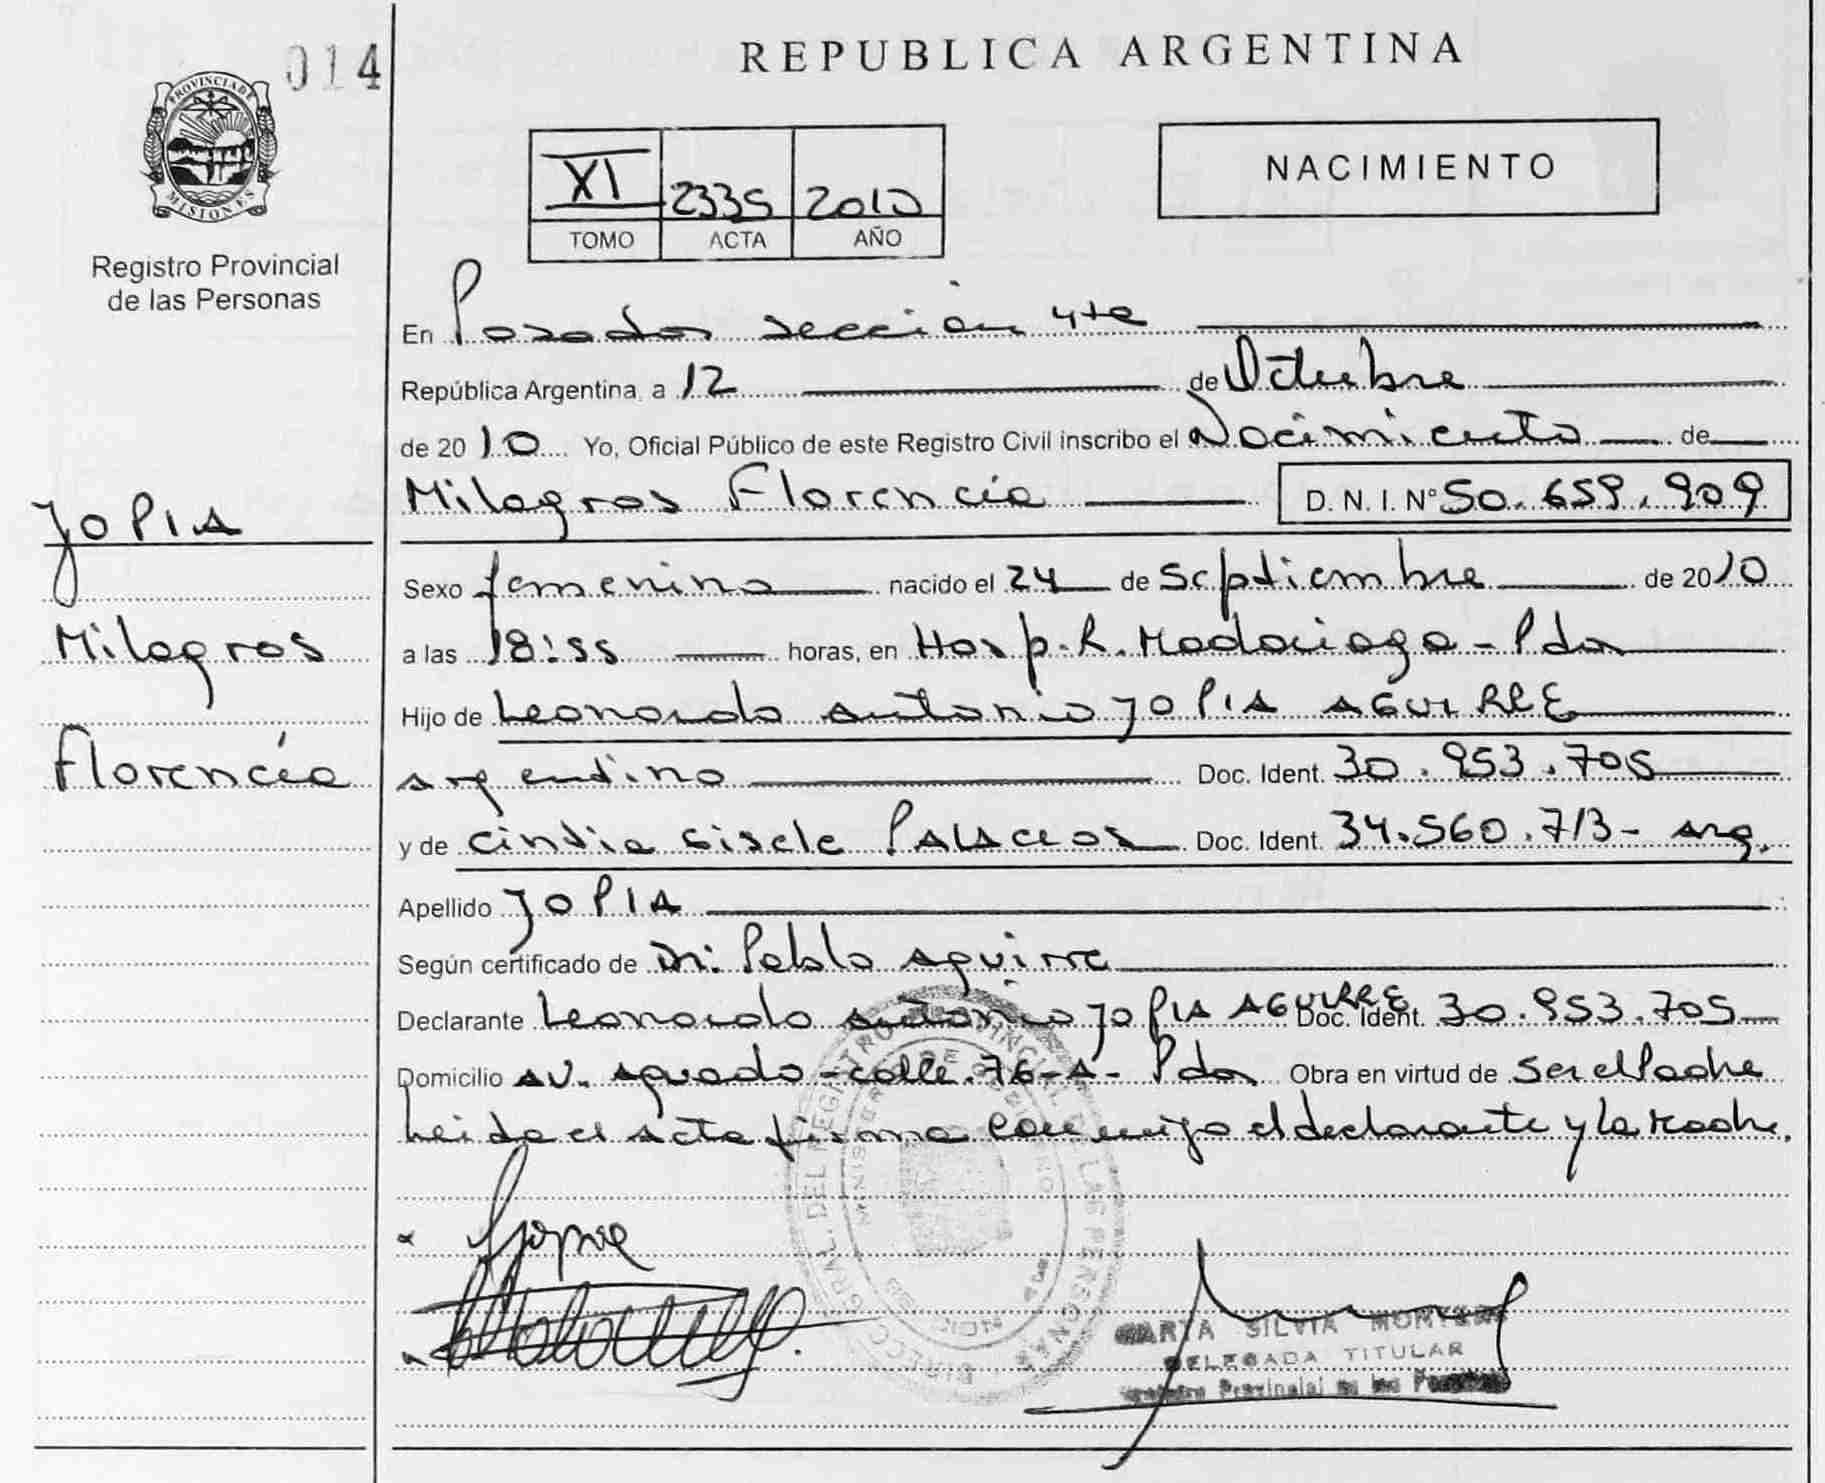 014
REPUBLICA ARGENTINA
PROVINCIA DE
MISIONES
XI 2335 2010
TOMO ACTA AÑO
NACIMIENTO
Registro Provincial
de las Personas
En Posadas sección 4ta
República Argentina, a 12 de Octubre
de 2010 Yo, Oficial Público de este Registro Civil inscribo el Nacimiento de
Milagros Florencia D. N. I. Nº 50.659.909
JOPIA
Sexo femenino nacido el 24 de Septiembre de 2010
Milagros
a las 18:55 horas, en Hosp. R. Madariaga - Pdas
Hijo de Leonardo Antonio JOPIA AGUIRRE
Florencia
argentino Doc. Ident. 30.953.705
y de Cintia Gisele PALACIOS Doc. Ident. 34.560.713 - arg.
Apellido JOPIA
Según certificado de Dr. Pablo Aguirre
Declarante Leonardo Antonio JOPIA AGUIRRE Doc. Ident. 30.953.705
Domicilio Av. Aguado - calle 76-A - Pdas Obra en virtud de Ser el Padre
Leida el acta firma conmigo el declarante y la Madre.
SILVIA
DELEGADA TITULAR
Registro Provincial de las Personas